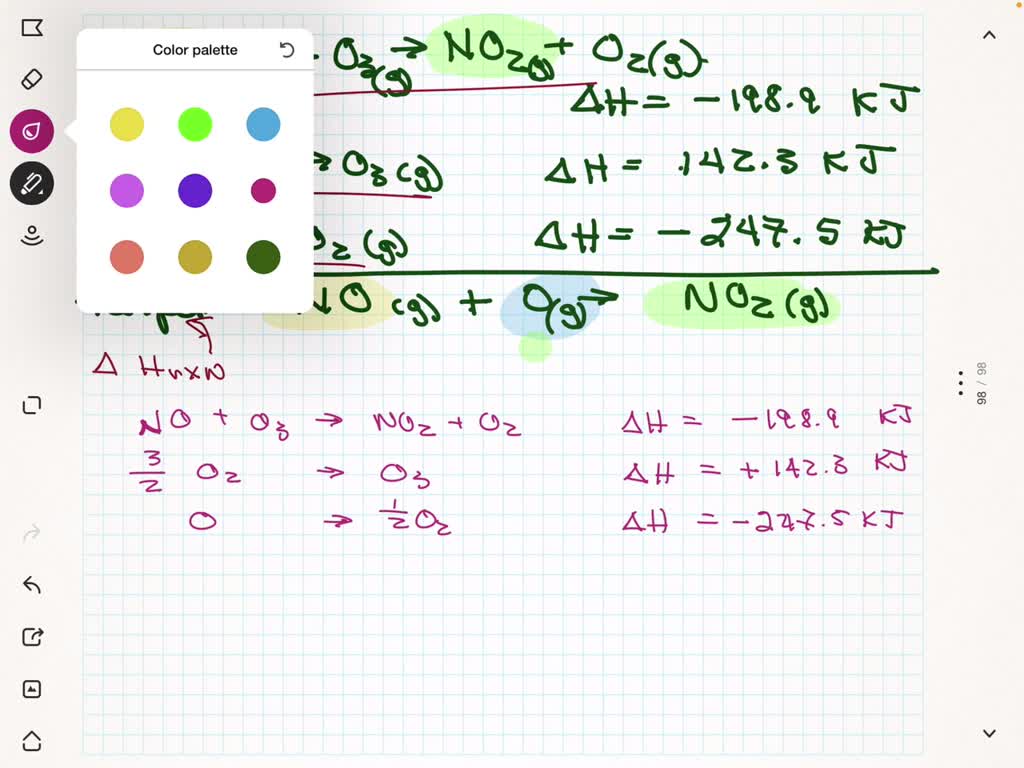 Color palette
O₃(g) → NO₂(g) + O₂(g)
ΔH = -198.9 KJ
→ O₃(g) ΔH = 142.3 KJ
O₂(g) ΔH = -247.5 KJ
NO(g) + O(g) → NO₂(g)
Δ Hrxn
NO + O₃ → NO₂ + O₂ ΔH = -198.9 KJ
3/2 O₂ → O₃ ΔH = +142.3 KJ
O → 1/2 O₂ ΔH = -247.5 KJ
98 / 98